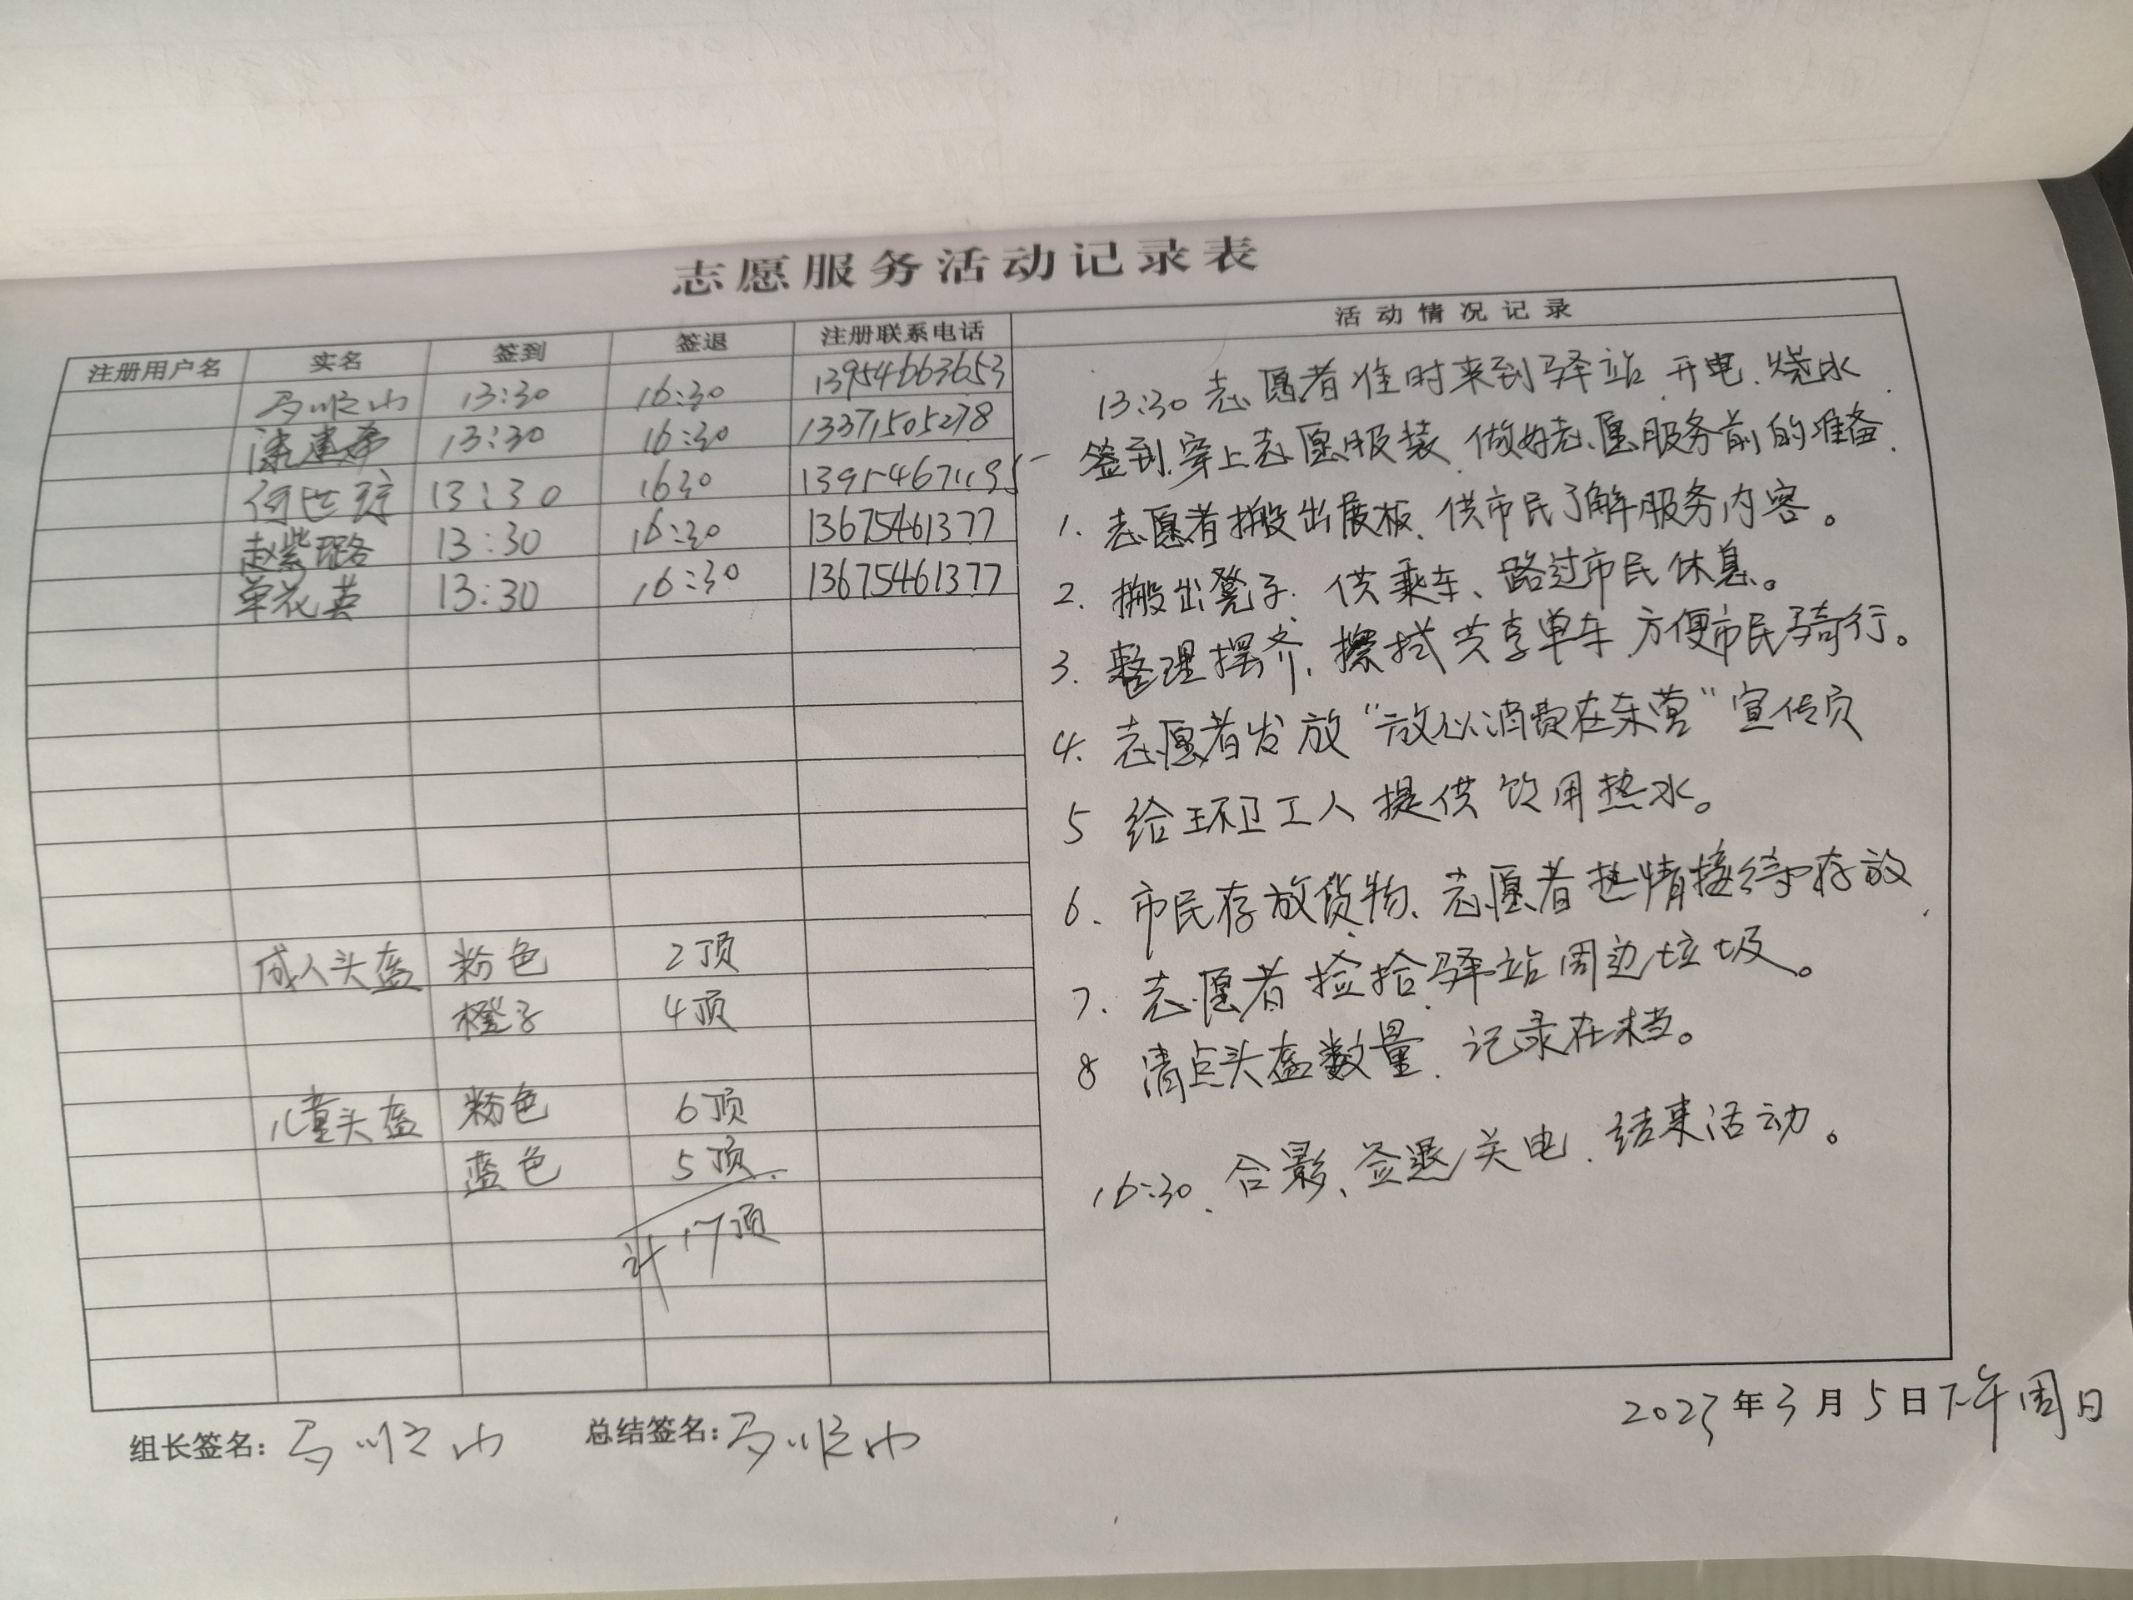 志愿服务活动记录表
注册用户名 实名 签到 签退 注册联系电话 活动情况记录
马顺山 13:30 16:30 13954663653
13:30 16:30 13371505278
何世琼 13:30 1630
赵紫璐 13:30 16:30 13675461377
单花英 13:30 16:30 13675461377
成人头盔 粉色 2顶
橙子 4顶
儿童头盔 粉色 6顶
蓝色 5顶
计17顶
13:30志愿者准时来到驿站、开电、烧水、
签到、穿上志愿服装、做好志愿服务前的准备、
1. 志愿者搬出展板、供市民了解服务内容。
2. 搬出凳子、供乘车、路过市民休息。
3. 整理摆齐、擦拭共享单车、方便市民骑行。
4. 志愿者发放“放心消费在东营”宣传页
5 给环卫工人提供饮用热水。
6. 市民存放货物、志愿者热情接待存放
7. 志愿者捡拾驿站周边垃圾。
8 清点头盔数量、记录在档。
16:30、合影、签退、关电、结束活动。
组长签名：马顺山 总结签名：马顺山
2023年3月5日下午周日